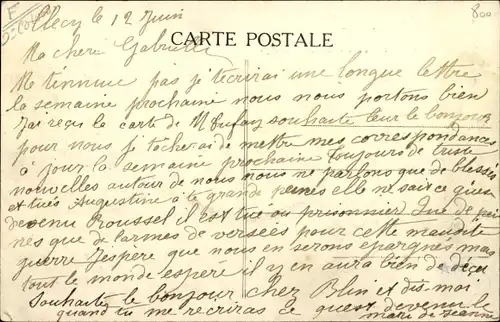 Clecy le 12 Juin
800
Ma chère Gabrielle
CARTE POSTALE
Me tennuie pas je técrirai une longue lettre
la semaine prochaine nous nous portons bien
J'ai reçu la carte de M souhaite leur le bonjour
pour nous je tâcherai de mettre mes correspondances
à jour la semaine prochaine Toujours de triste
nouvelles autour de nous nous ne parlons que de blesses
et tués Augustine à le grande peines elle ne sait ce quest
devenu Roussel il est tué ou prisonnier Que de pei-
nes que de larmes de versées pour cette maudite
guerre J'espère que nous en serons épargnés mais
tout le monde espere il y en aura bien de déçu
Souhaitez le bonjour chez Blin et dis moi
quand tu me recriras ce quest devenu le
mari de Jeanne